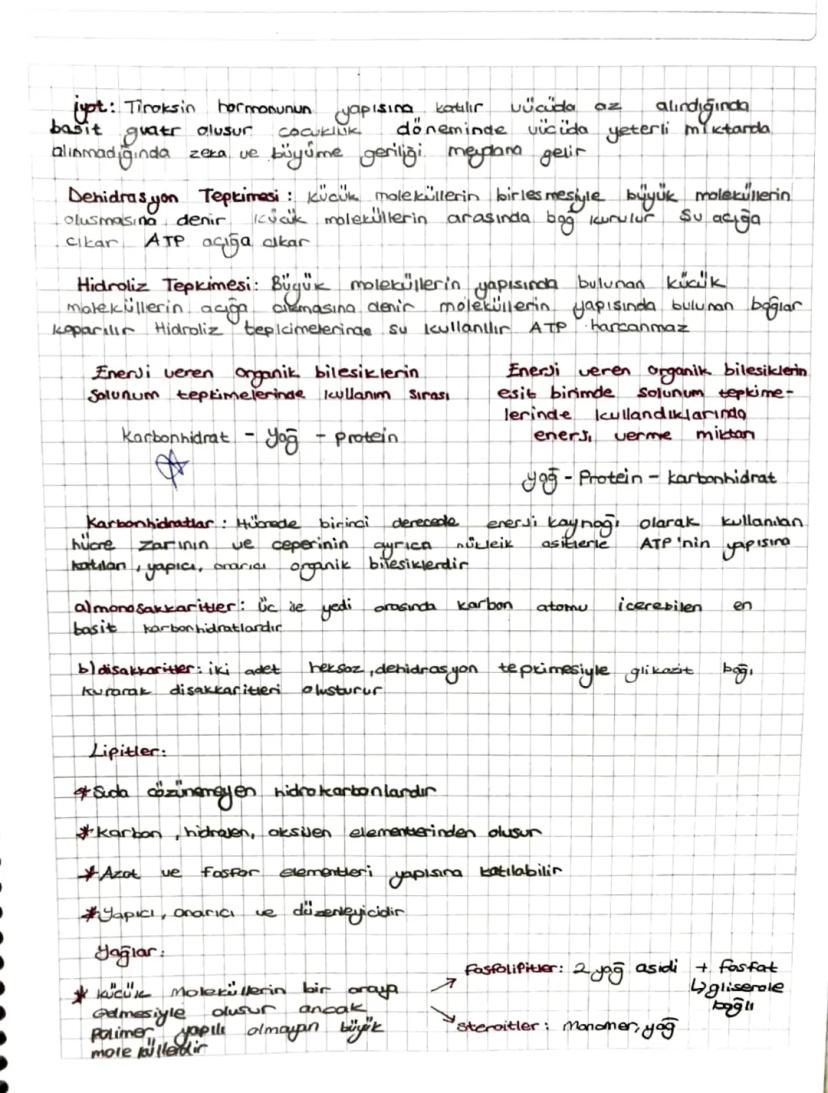 iyot: Tiroksin hormonunun yapısına katılır vücüda az alındığında
basit guatr olusur cocukluk döneminde vücüda yeterli miktarda
alınmadığında zeka ve büyüme geriliği meydana gelir
Dehidrasyon Tepkimesi: Kücük moleküllerin birlesmesiyle büyük moleküllerin
olusmasına denir kücük moleküllerin arasında bağ kurulur su açığa
cıkar ATP açığa cıkar
Hidroliz Tepkimesi: Büyük moleküllerin yapısında bulunan kücük
moleküllerin açığa cıkmasına denir moleküllerin yapısında bulunan bağlar
koparılır Hidroliz tepkimelerinde su kullanılır ATP harcanmaz
Enerji veren organik bilesiklerin
Solunum tepkimelerinde kullanım sırası
Karbonhidrat - Yağ - protein
Enerji veren organik bilesiklerin
esit birimde solunum tepkime-
lerinde kullandıklarında
enerji verme miktarı
yağ - Protein - karbonhidrat
Karbonhidratlar: Hücrede birinci derecede enerji kaynağı olarak kullanılan
hücre zarının ve ceperinin ayrıca nükleik asitlerle ATP'nin yapısına
katılan, yapıcı, onarıcı organik bilesiklerdir
a) monosakkaritler: üc ile yedi arasında karbon atomu icerebilen en
basit karbonhidratlardır
b) disakkaritler: iki adet heksoz, dehidrasyon tepkimesiyle glikozit bağı
kurarak disakkaritleri olusturur
Lipitler:
* Suda cözünemeyen hidrokarbonlardır
* Karbon, hidrojen, oksijen elementlerinden olusur
* Azot ve fosfor elementleri yapısına katılabilir
* Yapıcı, onarıcı ve düzenleyicidir
Yağlar:
* Kücük Moleküllerin bir araya
gelmesiyle olusur ancak
polimer yapılı olmayan büyük
moleküllerdir
→ fosfolipitler: 2 yağ asidi + fosfat
↳ gliserole
bağlı
→ steroitler: Monomer, yağ